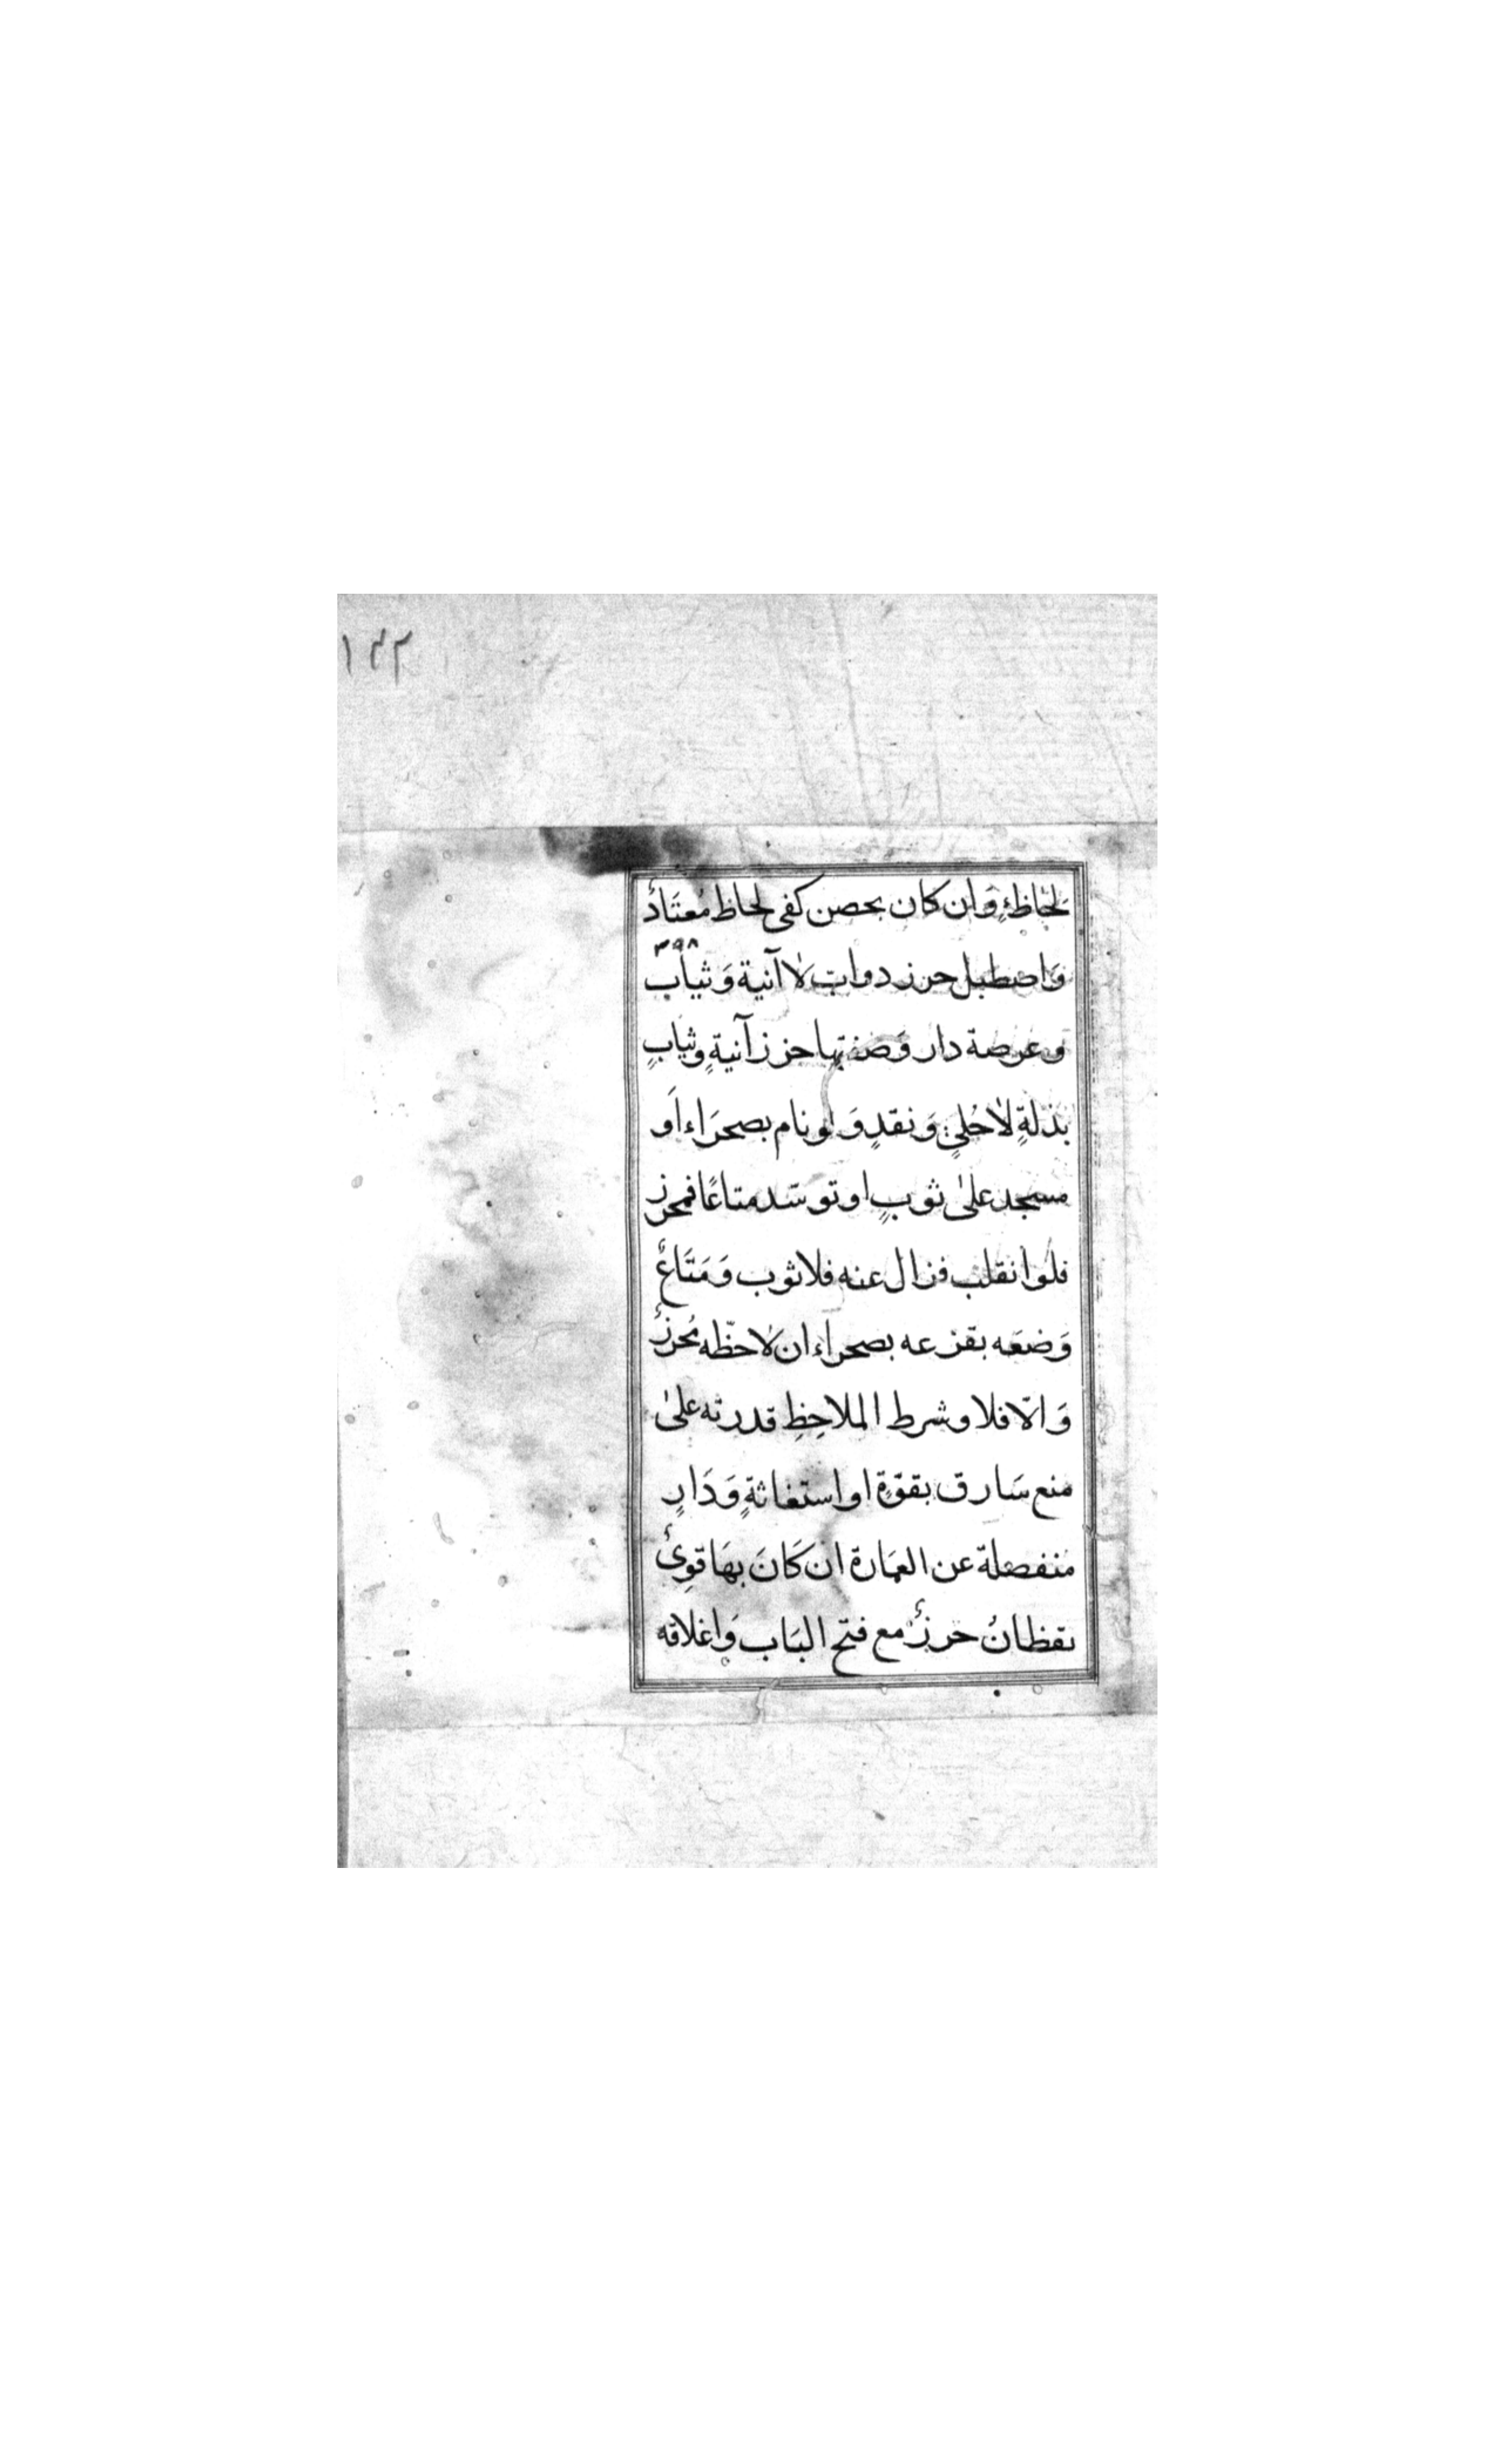 ١٣٢
لحاظٍ وَان كان بحصن كفى لحاظ مُعتَادٌ
٣٩٨
وَاصطبل حرز دواب لا آنية وَثياب
وعرصة دار وَصفتها حرز آنيةٍ وثيابٍ
بذلةٍ لا حُليٍ وَنقدٍ وَلو نام بصحرَاء اَو
مسجد على ثوبٍ او توسّد متاعًا فمحرز
فلو انقلب فزال عنه فلا ثوب وَمَتَاعٌ
وَضعَه بقزعه بصحراء ان لاحظه مُحرزٌ
وَالّا فلا وشرط الملاحِظِ قدرته على
منع سَارق بقوّة او استغاثةٍ وَدَارٍ
منفصلة عن العمَارة ان كَانَ بهَا قوِىٌ
يقظانُ حرزٌ مع فتح البَاب وَاغلاقه